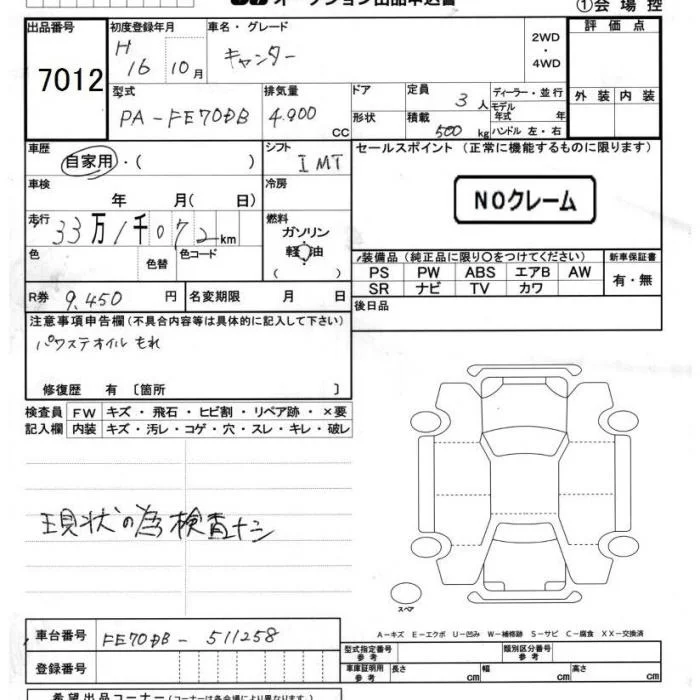 オークション出品申込書
①会場控
出品番号 7012
初度登録年月 H 16 10月
車名・グレード キャンター
2WD・4WD
評価点
外装 内装
型式 PA-FE70DB
排気量 4.900 CC
ドア
形状
定員 3人
積載 500 kg
ディーラー・並行
モデル年式 年
ハンドル 左・右
車歴 自家用・( )
シフト I MT
セールスポイント (正常に機能するものに限ります)
NOクレーム
車検 年 月( 日)
冷房
走行 33万1千072km
燃料 ガソリン
軽油
( )
色 色替 色コード
装備品 (純正品に限り○をつけてください)
新車保証書
PS PW ABS エアB AW
SR ナビ TV カワ
有・無
R券 9,450 円 名変期限 月 日
後日品
注意事項申告欄 (不具合内容等は具体的に記入して下さい)
パワステオイルもれ
修復歴 有 〔箇所 〕
検査員 FW キズ・飛石・ヒビ割・リペア跡・×要
記入欄 内装 キズ・汚レ・コゲ・穴・スレ・キレ・破レ
現状の為検査ナシ
スペア
A-キズ E-エクボ U-凹み W-補修跡 S-サビ C-腐食 XX-交換済
車台番号 FE70DB-511258
登録番号
型式指定番号 参考
類別区分番号 参考
車庫証明用 参考 長さ cm 幅 cm 高さ cm
希望出品コーナー (コーナーは各会場により異なります。)